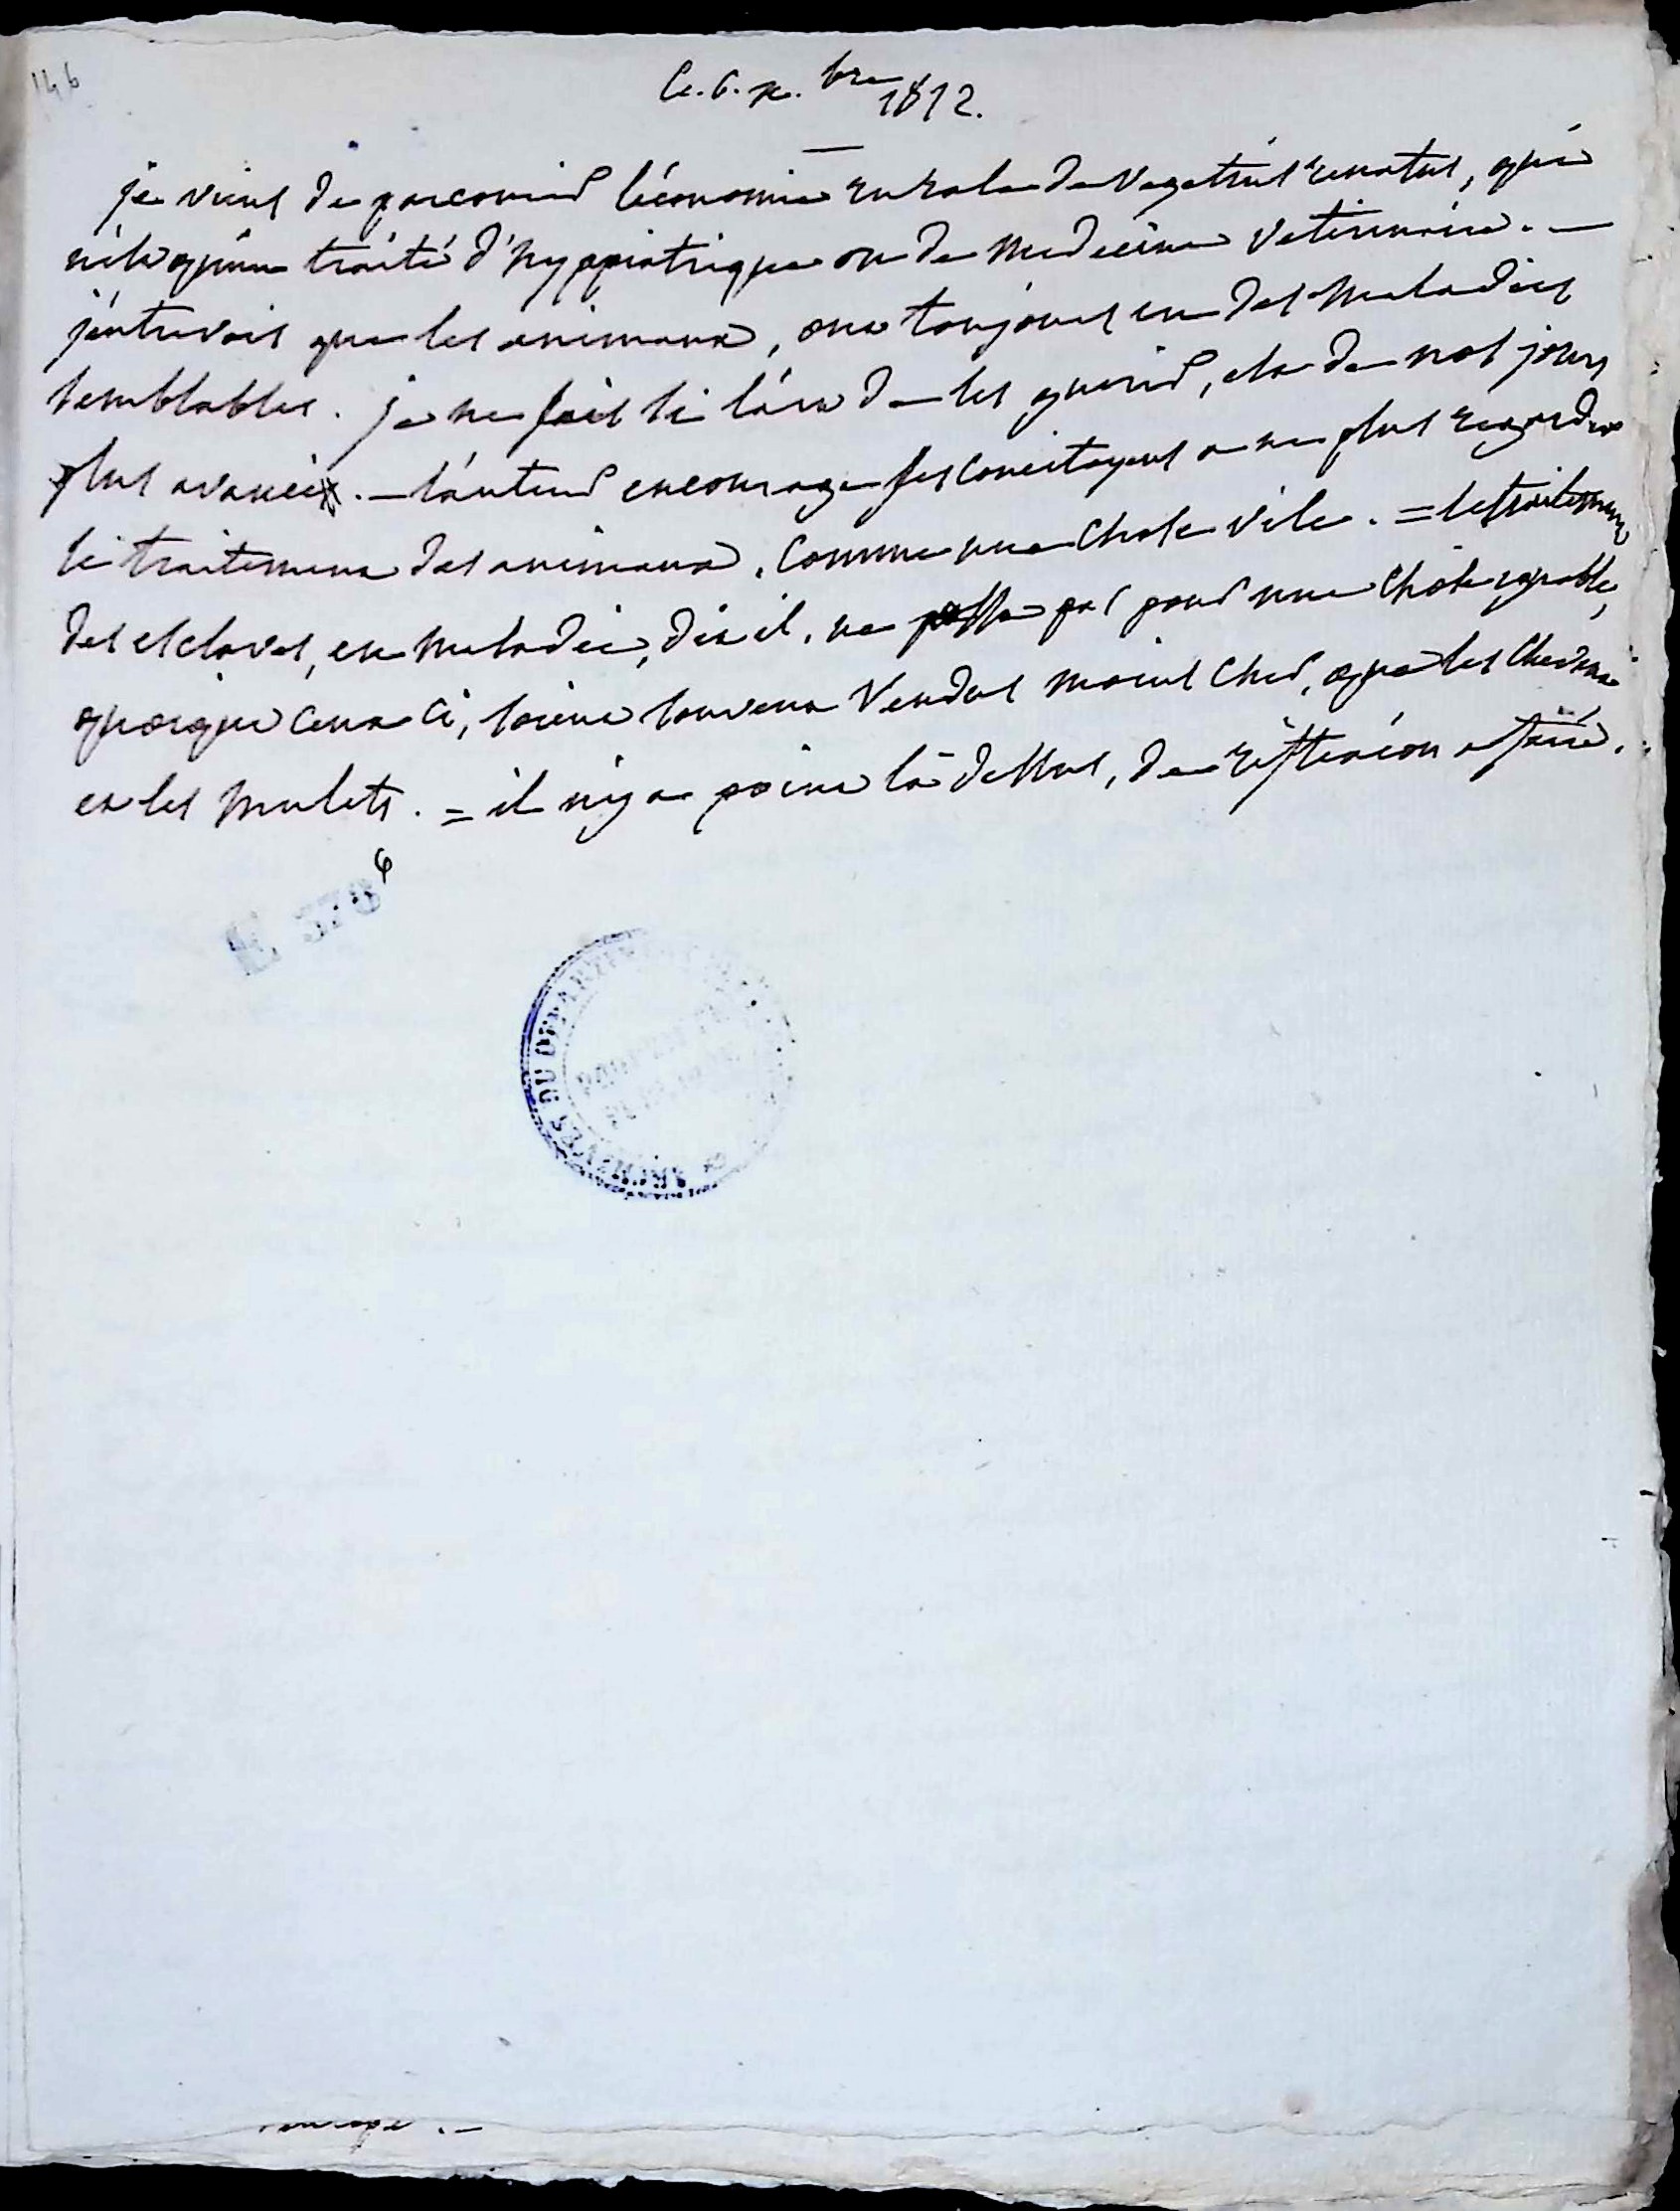 146
Ce. 6. x.bre 1812.
je viens de parcourir l'économie rurale de Vegetius renatus, qui
n'est qu'un traité d'hyppiatrique ou de medecine veterinaire. —
j'entrevois que les animaux, ont toujours eu des maladies
semblables. je ne sais si l'art de les guerir, est de nos jours
plus avancé. — l'auteur encourage ses concitoyens a ne plus regarder
le traitement des animaux, comme une chose vile. = le traitement
des esclaves, en maladie, dit il, ne passe pas pour une chose ignoble,
quoique ceux ci, soient souvent vendus moins cher, que les chevaux
et les mulets. = il n'y a point là dessus, de réflexion a faire.
6
ARCHIVES DU DÉPARTEMENT